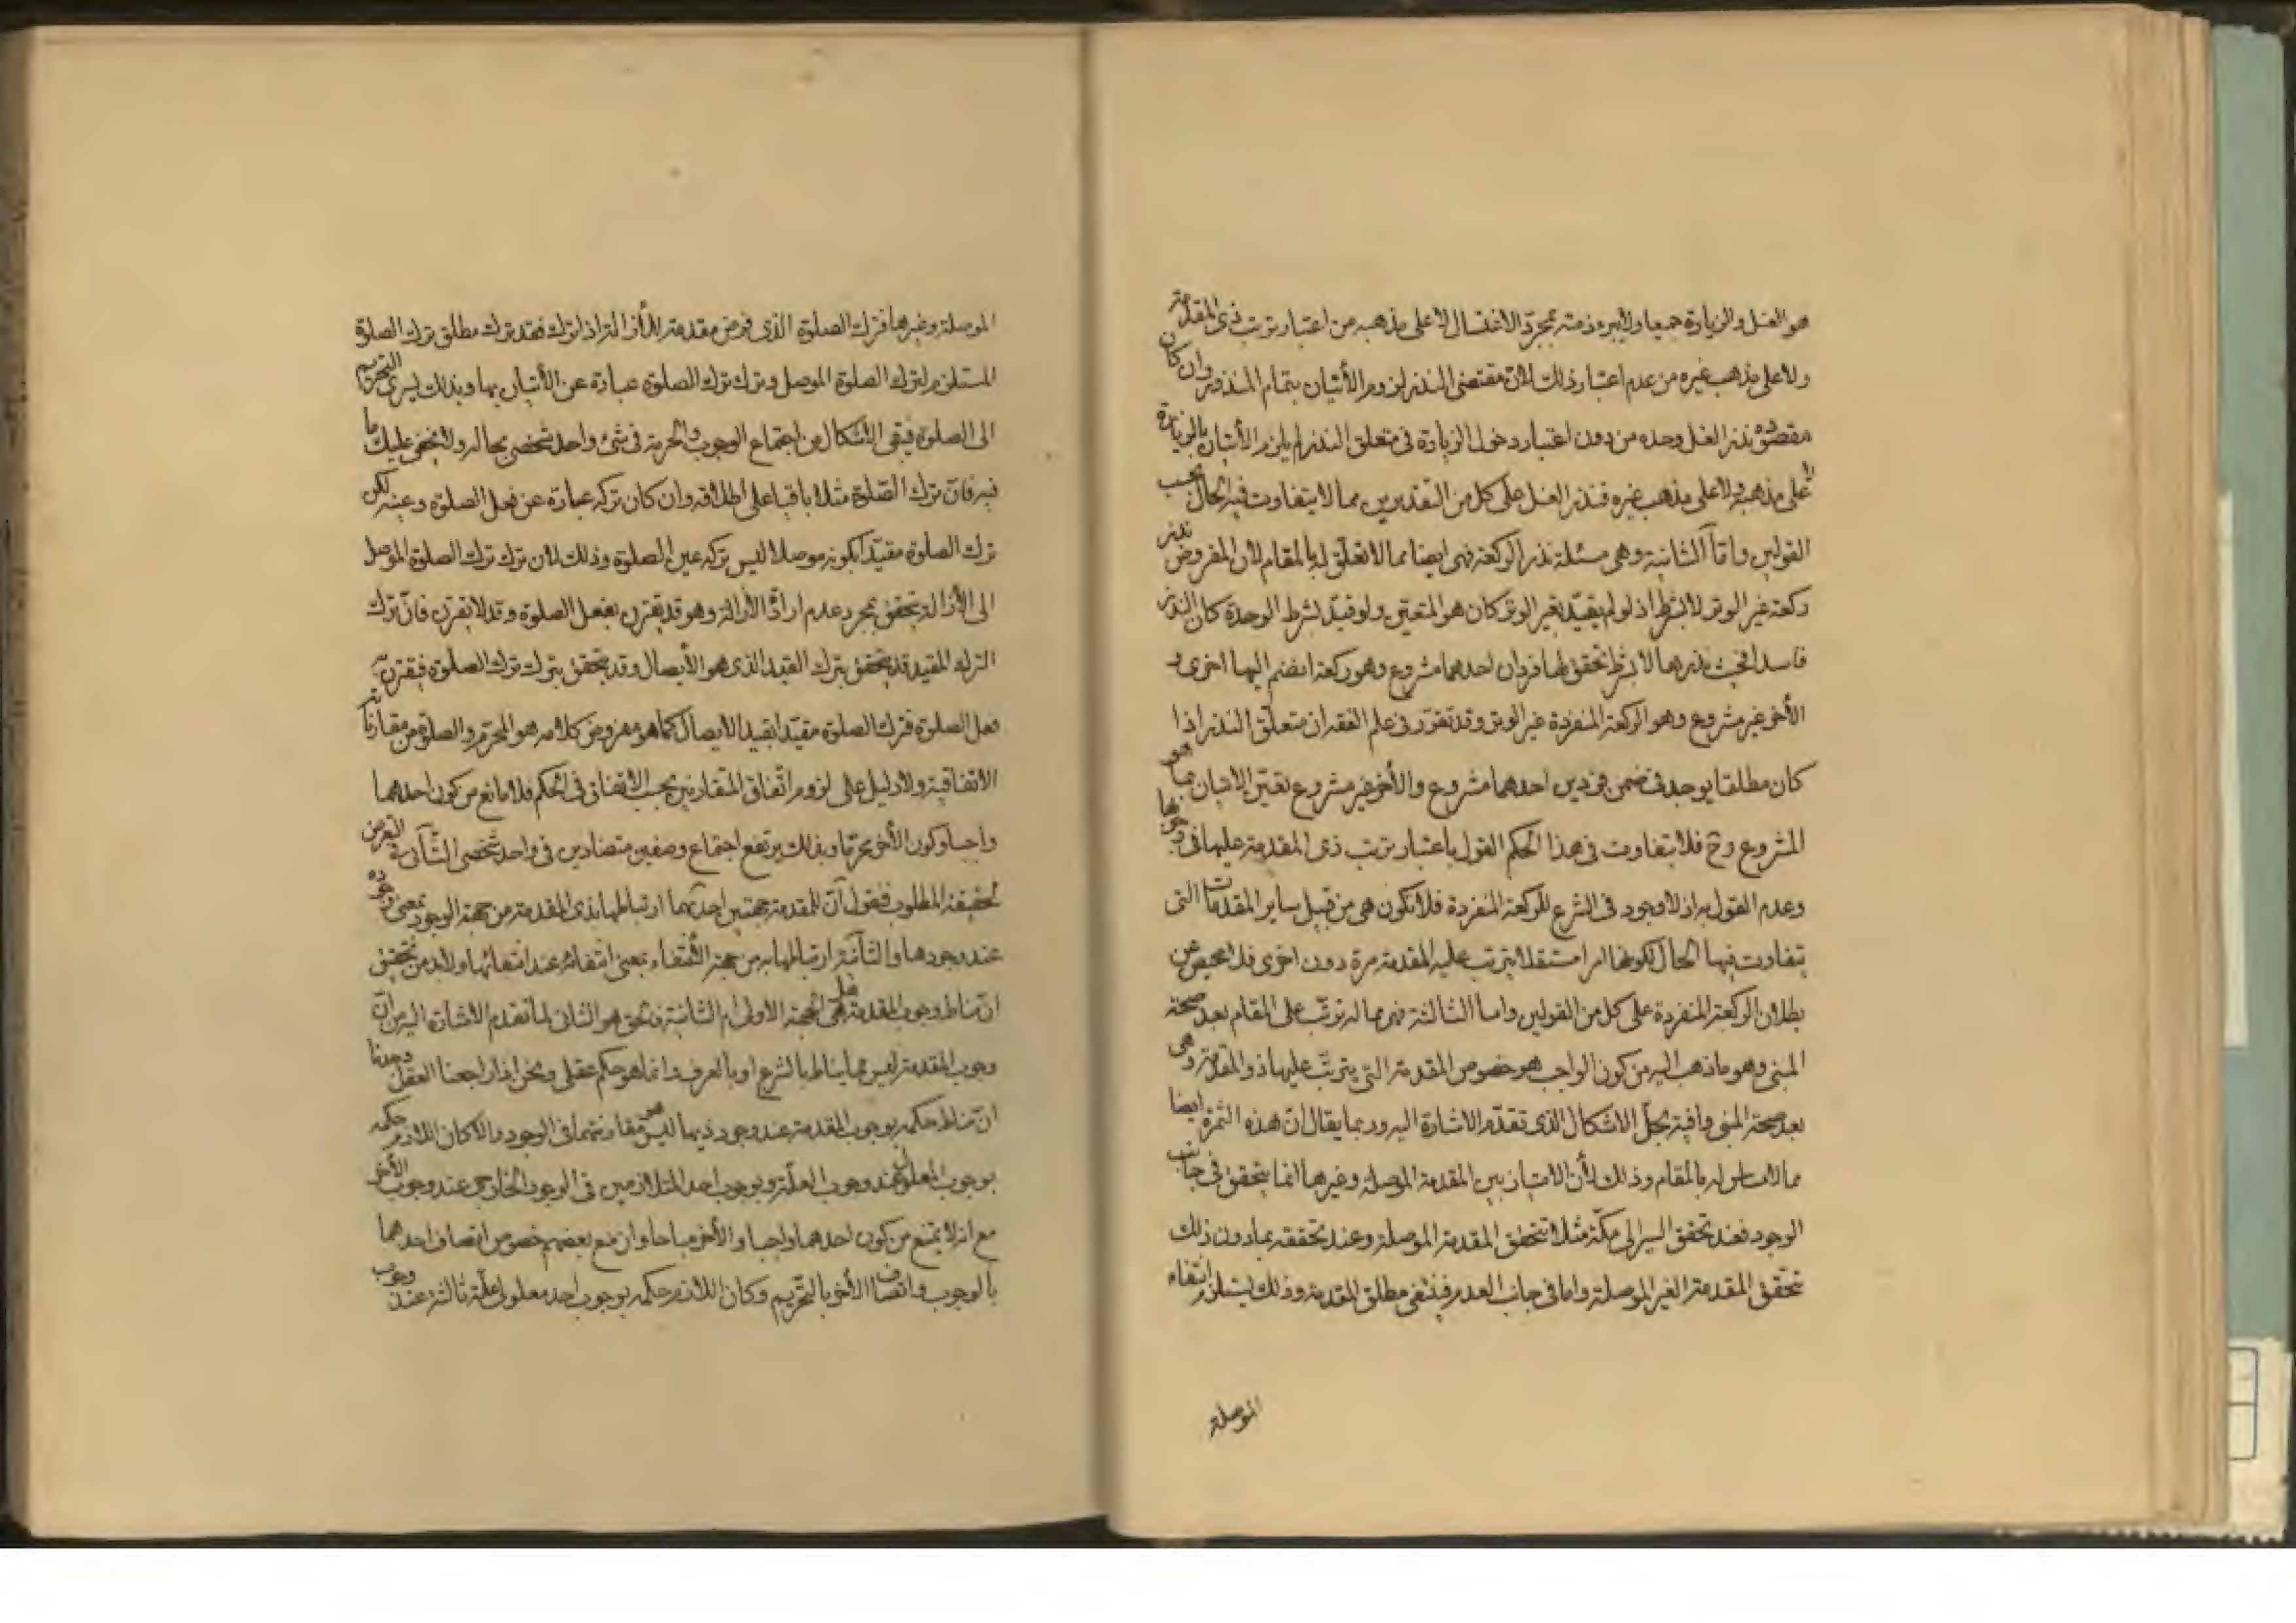 هو الغسل والزيارة جميعا ولا يبرء ذمته بمجرد الاغتسال لا على مذهبه من اعتبار ترتب ذى المقدمة
ولا على مذهب غيره من عدم اعتبار ذلك لانّ مقتضى النذر لزوم الأتيان بتمام المنذور وان كان
مقصوده نذر الغسل وحده من دون اعتبار دخول الزيارة فى متعلق النذر لم يلزم الأتيان بالزيارة
لا على مذهبه ولا على مذهب غيره فنذر الغسل على كل من التقديرين مما لا يتفاوت فيه الحال بحسب
القولين وامّا الثانية وهى مسئلة نذر الركعة فهى ايضا مما لا تعلّق له بالمقام لأن المفروض نذر
ركعة غير الوتر لا بشرط اذ لو لم يقيّد بغير الوتر كان هو المتعين ولو قيّد بشرط الوحدة كان النذر
فاسدا فحيث نذرهما لا بشرط تحقق لها فردان احدهما مشروع وهو ركعة انضم اليها اخرى و
الأخر غير مشروع وهو الركعة المنفردة غير الوتر وقد تقرّر فى علم الفقه ان متعلّق النذر اذا
كان مطلقا يوجد فى ضمن فردين احدهما مشروع والأخر غير مشروع تعيّن الاتيان بما هو
المشروع وح فلا يتفاوت فى هذا الحكم القول باعتبار ترتب ذى المقدمة عليها فى وجوبها
وعدم القول به اذ لا وجود فى الشرع للركعة المنفردة فلا تكون هى من قبيل ساير المقدمات التى
يتفاوت فيها الحال بكونها امرا مستقلا يترتب عليه المقدمة مرة دون اخرى فلا محيص عن
بطلان الركعة المنفردة على كل من القولين واما الثالثة فهى مما له ترتّب على المقام بعد صحة
المبنى وهو ما ذهب اليه من كون الواجب هو خصوص المقدمة التى يترتّب عليها ذو المقدمة وهى
بعد صحة المبنى وافية بحلّ الاشكال الذى تقدّم الاشارة اليه وربما يقال انّ هذه الثمرة ايضا
مما لا مساس له بالمقام وذلك لأن الامتياز بين المقدمة الموصلة وغيرها انما يتحقق فى جانب
الوجود فعند تحقق السير الى مكّة مثلا تتحقق المقدمة الموصلة وعند تحققه بما دون ذلك
تحقّق المقدمة الغير الموصلة واما فى جانب العدم فينتفى مطلق المقدمة وذلك يستلزم انتفاء
الموصلة
الموصلة وغيرها فترك الصلوة الذى فرض مقدمة للأزالة اذا ترك فقد ترك مطلق ترك الصلوة
المستلزم لترك الصلوة الموصل وترك ترك الصلوة عبارة عن الأتيان بها وبذلك يسرى التحريم
الى الصلوة فيبقى الأشكال من اجتماع الوجوب والحرمة فى شئ واحد شخصى بحاله ولا يخفى عليك ما
فيه فانّ ترك الصّلوة مثلا باقيا على اطلاقه وان كان تركه عبارة عن فعل الصلوة وعينه لكن
ترك الصلوة مقيّدا بكونه موصلا ليس تركه عين الصلوة وذلك لأن ترك ترك الصلوة الموصل
الى الأزالة يتحقق بمجرد عدم ارادة الأزالة وهو قد يقترن بفعل الصلوة وقد لا يقترن فانّ ترك
الترك المقيد قد يتحقق بترك القيد الذى هو الأيصال وقد يتحقق بترك ترك الصلوة فيقترن به
فعل الصلوة فترك الصلوة مقيّدا بقيد الأيصال كما هو مفروض كلامه هو المحرّم والصلوة من مقارناته
الاتفاقية ولا دليل على لزوم اتّفاق المتقارنين بحسب الاتفاق فى الحكم فلا مانع من كون احدهما
واجبا وكون الأخر محرّما وبذلك يرتفع اجتماع وصفين متضادين فى واحد شخصى الثّانى التعرض
لحقيقة المطلوب فنقول انّ للمقدمة جهتين احديهما ارتباطها بذى المقدمة من جهة الوجود بمعنى وجوده
عند وجودها والثانية ارتباطها به من جهة الأنتفاء بمعنى انتفائه عند انتفائها ولا بد من تحقيق
انّ مناط وجوب المقدمة هل هى الجهة الأولى ام الثانية فنقول هو الثانى لما تقدم الاشارة اليه من انّ
وجوب المقدمة ليس مما يناط بالشرع او بالعرف وانما هو حكم عقلى ونحن اذا راجعنا العقل وجدنا
انّ مناط حكمه بوجوب المقدمة عند وجود ذيها ليس هو مقارنتهما فى الوجود والا لكان اللازم حكمه
بوجوب المعلول عند وجوب العلّة وبوجوب احد المتلازمين فى الوجود الخارجى عند وجوب الأخر
مع انه لا يمتنع من كون احدهما واجبا والأخر مباحا وان منع بعضهم خصوص اتصاف احدهما
بالوجوب واتصاف الأخر بالتّحريم وكان اللازم حكمه بوجوب احد معلولى علّة ثالثة عند وجوب